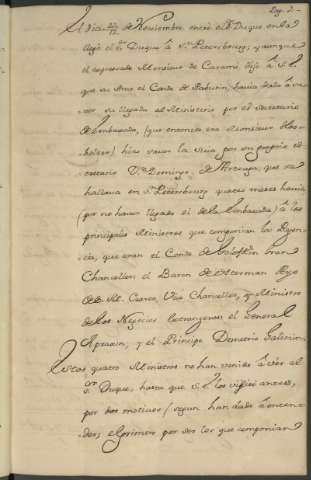 Pag. 3.
El dia 23/12 de Noviembre entró el Duque en la
llegó el Sr. Duque á Sn. Petersbourg, y aunque
el expresado Monsieur de Caramé dijo á S. E.
que su Amo el Conde de Rabutin, havia dado á
su llegada al Ministerio por el Secretario
de Embaxada, (que entonces era Monsieur
hizo pasar la suya por su propio se-
cretario Dn. Domingo de Arteaga, que se
hallava en Sn. Petersbourg quatro meses havia
(por no haver llegado el de la Embaxada) á los
principales Ministros que componian la Regen-
cia, que eran el Conde de Golofkin Gran
Chanceller, el Baron de Osterman Ayo
de S. M. Czarea, Vice Chanceller, y Ministro
de los Negocios estrangeros, el General
Apraxin, y el Principe Demetrio Galizin.
Estos quatro Ministros no han venido á vér al
Sr. Duque, hasta que S. E. los visitó antes,
por dos motivos (segun han dado á enten-
der, el primero por ser los que componian